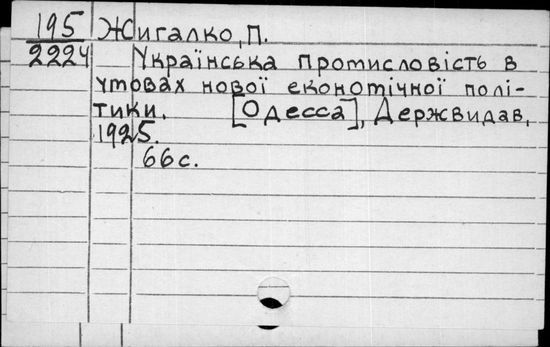 195 Жигалко, П.
2224 Українська промисловість в
умовах нової економічної полі-
тики. [Одесса], Держвидав,
1925.
66с.